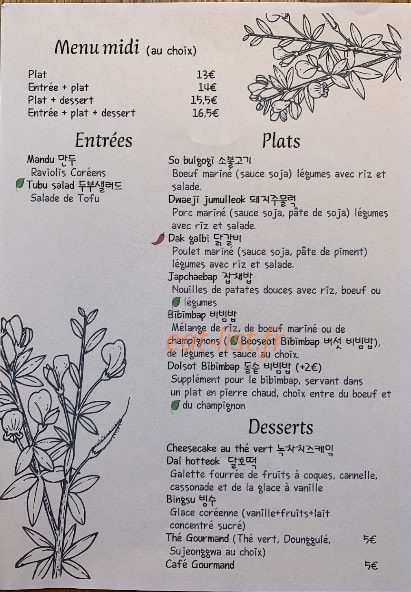 Menu midi (au choix)
Plat 13€
Entrée + plat 14€
Plat + dessert 15,5€
Entrée + plat + dessert 16,5€
Entrées
Mandu 만두
Raviolis Coréens
Tubu salad 두부샐러드
Salade de Tofu
Plats
So bulgogi 소불고기
Boeuf mariné (sauce soja) légumes avec riz et
salade.
Dwaeji jumulleok 돼지주물럭
Porc mariné (sauce soja, pâte de soja) légumes
avec riz et salade.
Dak galbi 닭갈비
Poulet mariné (sauce soja, pâte de piment)
légumes avec riz et salade.
Japchaebap 잡채밥
Nouilles de patates douces avec riz, boeuf ou
légumes
Bibimbap 비빔밥
Mélange de riz, de boeuf mariné ou de
champignons ( Beoseot Bibimbap 버섯 비빔밥),
de légumes et sauce au choix.
Dolsot Bibimbap 돌솥 비빔밥 (+2€)
Supplément pour le bibimbap, servant dans
un plat en pierre chaud, choix entre du boeuf et
du champignon
Desserts
Cheesecake au thé vert 녹차치즈케익
Dal hotteok 달호떡
Galette fourrée de fruits à coques, cannelle,
cassonade et de la glace à vanille
Bingsu 빙수
Glace coréenne (vanille+fruits+lait
concentré sucré)
Thé Gourmand (Thé vert, Dounggulé, 5€
Sujeonggwa au choix)
Café Gourmand 5€